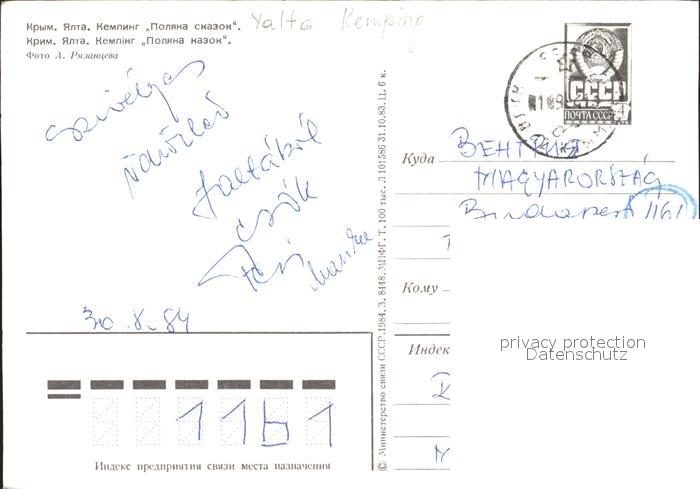 Крым. Ялта. Кемпинг „Поляна сказок".
Крим. Ялта. Кемпінг „Поляна казок".
Фото А. Рязанцева
Yalta Kemping
Szívélyes
üdvözlet
Jaltából
Csók
30.8.84
СССР
ПОЧТА СССР
Куда
ВЕНГРИЯ
MAGYARORSZÁG
Budapest 1161
Кому
Индек
privacy protection
Datenschutz
1161
Индекс предприятия связи места назначения
© Министерство связи СССР. 1984. З. 8448. МПФГ. Т. 100 тыс. Л 101586 31.10.83. Ц. 6 к.